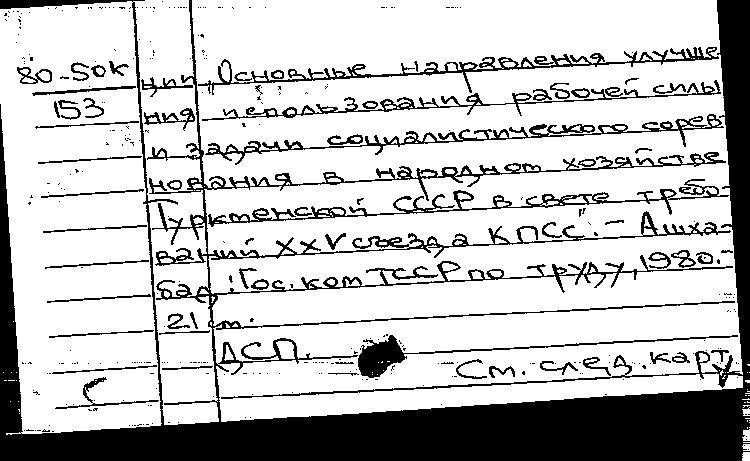 80-50к ции „Основные направления улучше-
153 ния использования рабочей силы
и задачи социалистического сорев-
нования в народном хозяйстве
Туркменской ССР в свете требо-
ваний XXV съезда КПСС". - Ашха-
бад: Гос. ком ТССР по труду, 1980.-
21 ст.
ДСП.
См. след. карт